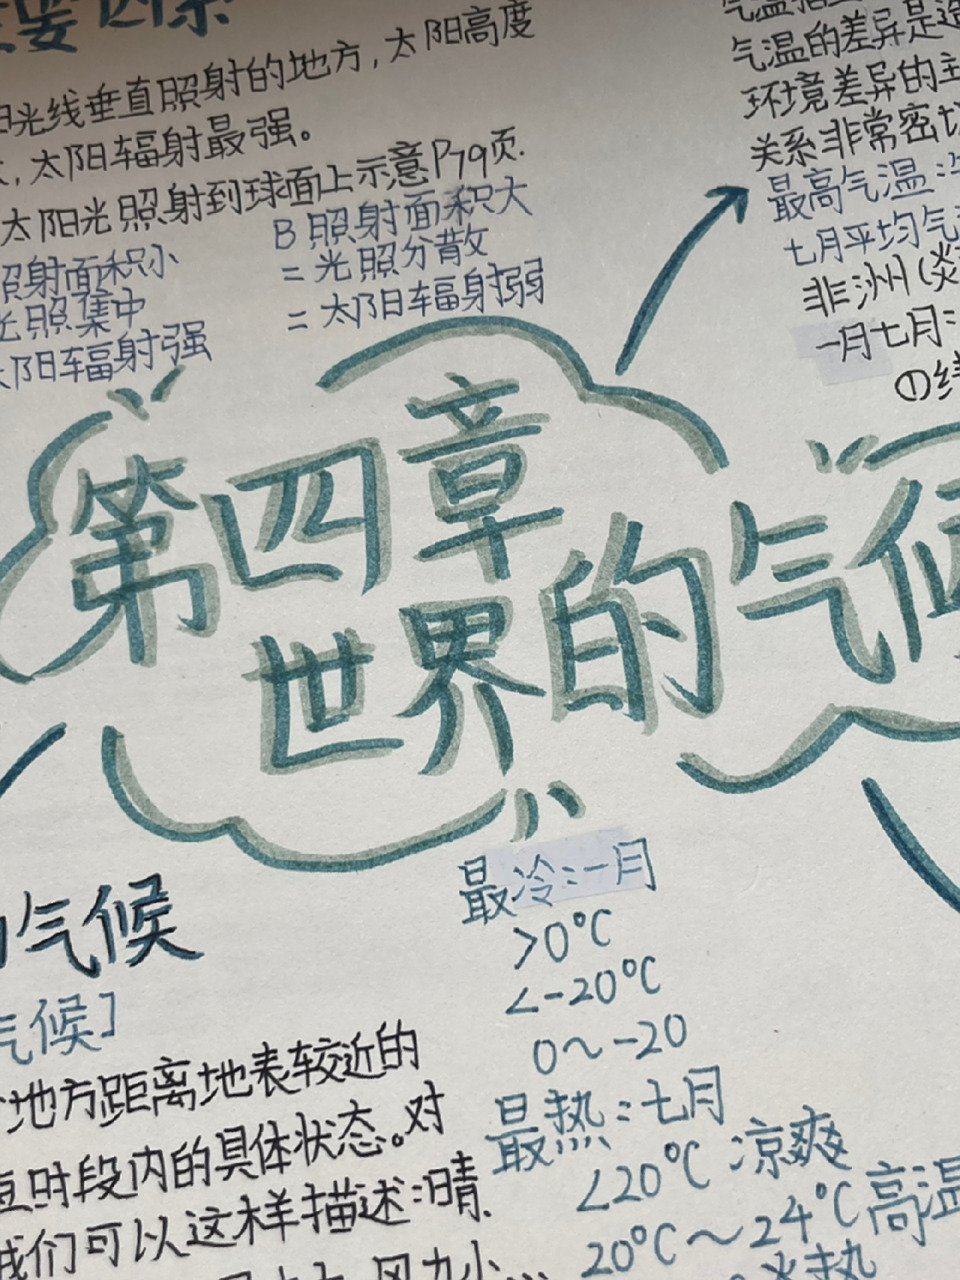 要因素
光线垂直照射的地方,太阳高度
,太阳辐射最强。
太阳光照射到球面上示意P79页.
照射面积小
光照集中
太阳辐射强
B 照射面积大
= 光照分散
= 太阳辐射弱
气温的差异是造
环境差异的主
关系非常密切
最高气温:
七月平均气
非洲(炎
一月七月:
①纬
第四章
世界的气候
气候
气候]
地方距离地表较近的
时段内的具体状态。对
我们可以这样描述:晴.
风力小...
最冷:一月
>0℃
<-20℃
0~-20
最热:七月
<20℃ 凉爽
20℃~24℃高温
炎热